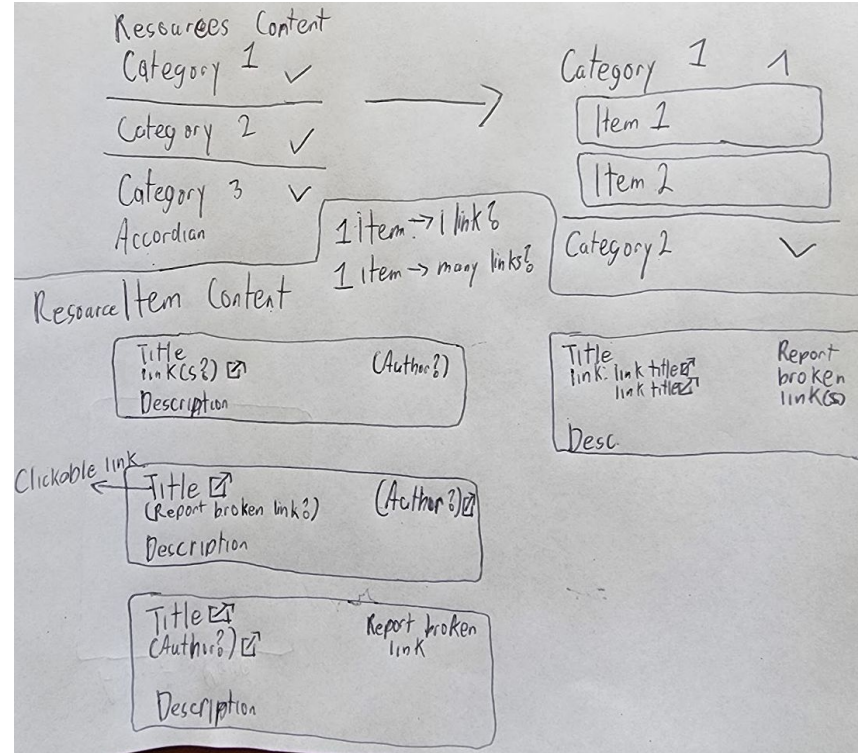 Resources Content
Category 1
Category 2
Category 3
Accordian
Category 1
Item 1
Item 2
Category 2
1 item → 1 link?
1 item → many links?
Resource Item Content
Title
link(s?)
(Author?)
Description
Title
link: link title
link title
Report
broken
link(s)
Desc.
Clickable link
Title
(Report broken link?)
(Author?)
Description
Title
(Author?)
Report broken
link
Description